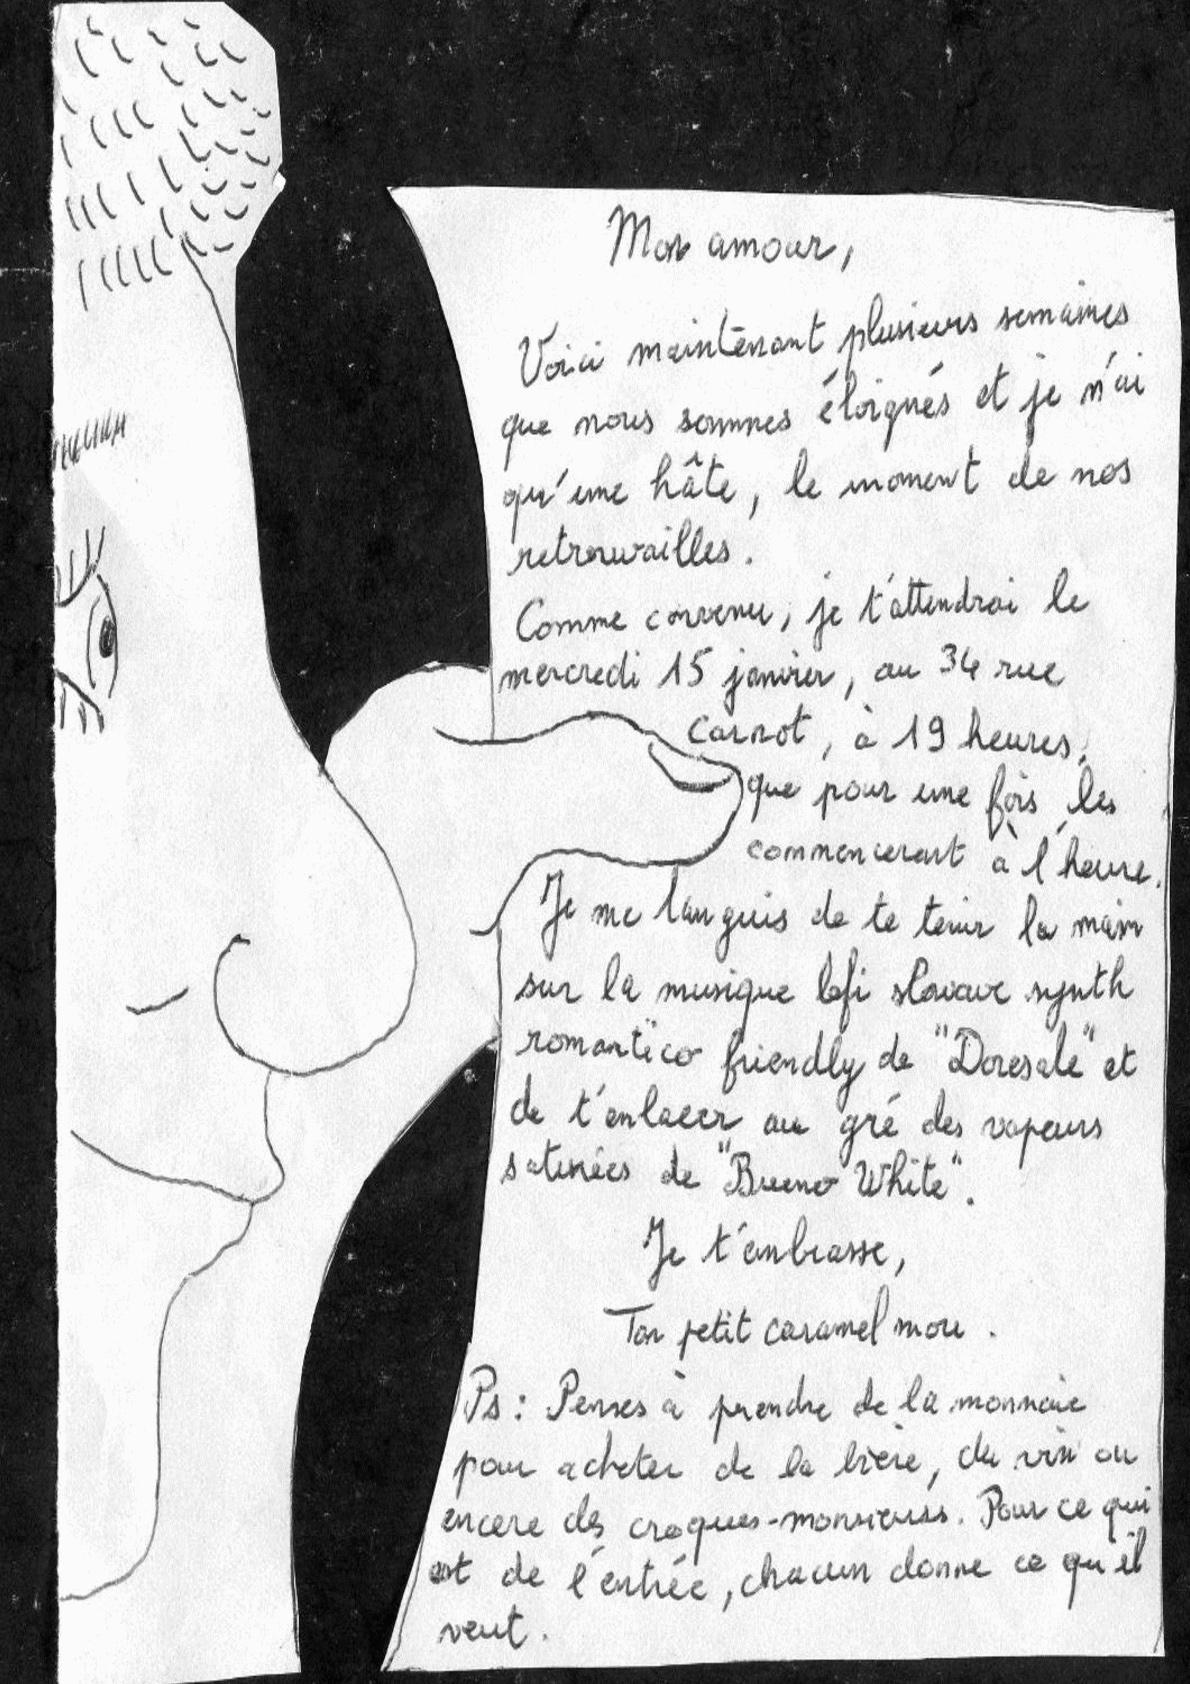 Mon amour,
Voici maintenant plusieurs semaines
que nous sommes éloignés et je n'ai
qu'une hâte, le moment de nos
retrouvailles.
Comme convenu, je t'attendrai le
mercredi 15 janvier, au 34 rue
Carnot, à 19 heures,
que pour une fois les
commenceront à l'heure.
Je me languis de te tenir la main
sur la musique lofi slowave synth
romantico friendly de "Doresale" et
de t'enlacer au gré des vapeurs
satinées de "Bueno White".
Je t'embrasse,
Ton petit caramel mou.
Ps : Penses à prendre de la monnaie
pour acheter de la bière, du vin ou
encore des croques-monsieurs. Pour ce qui
est de l'entrée, chacun donne ce qu'il
veut.